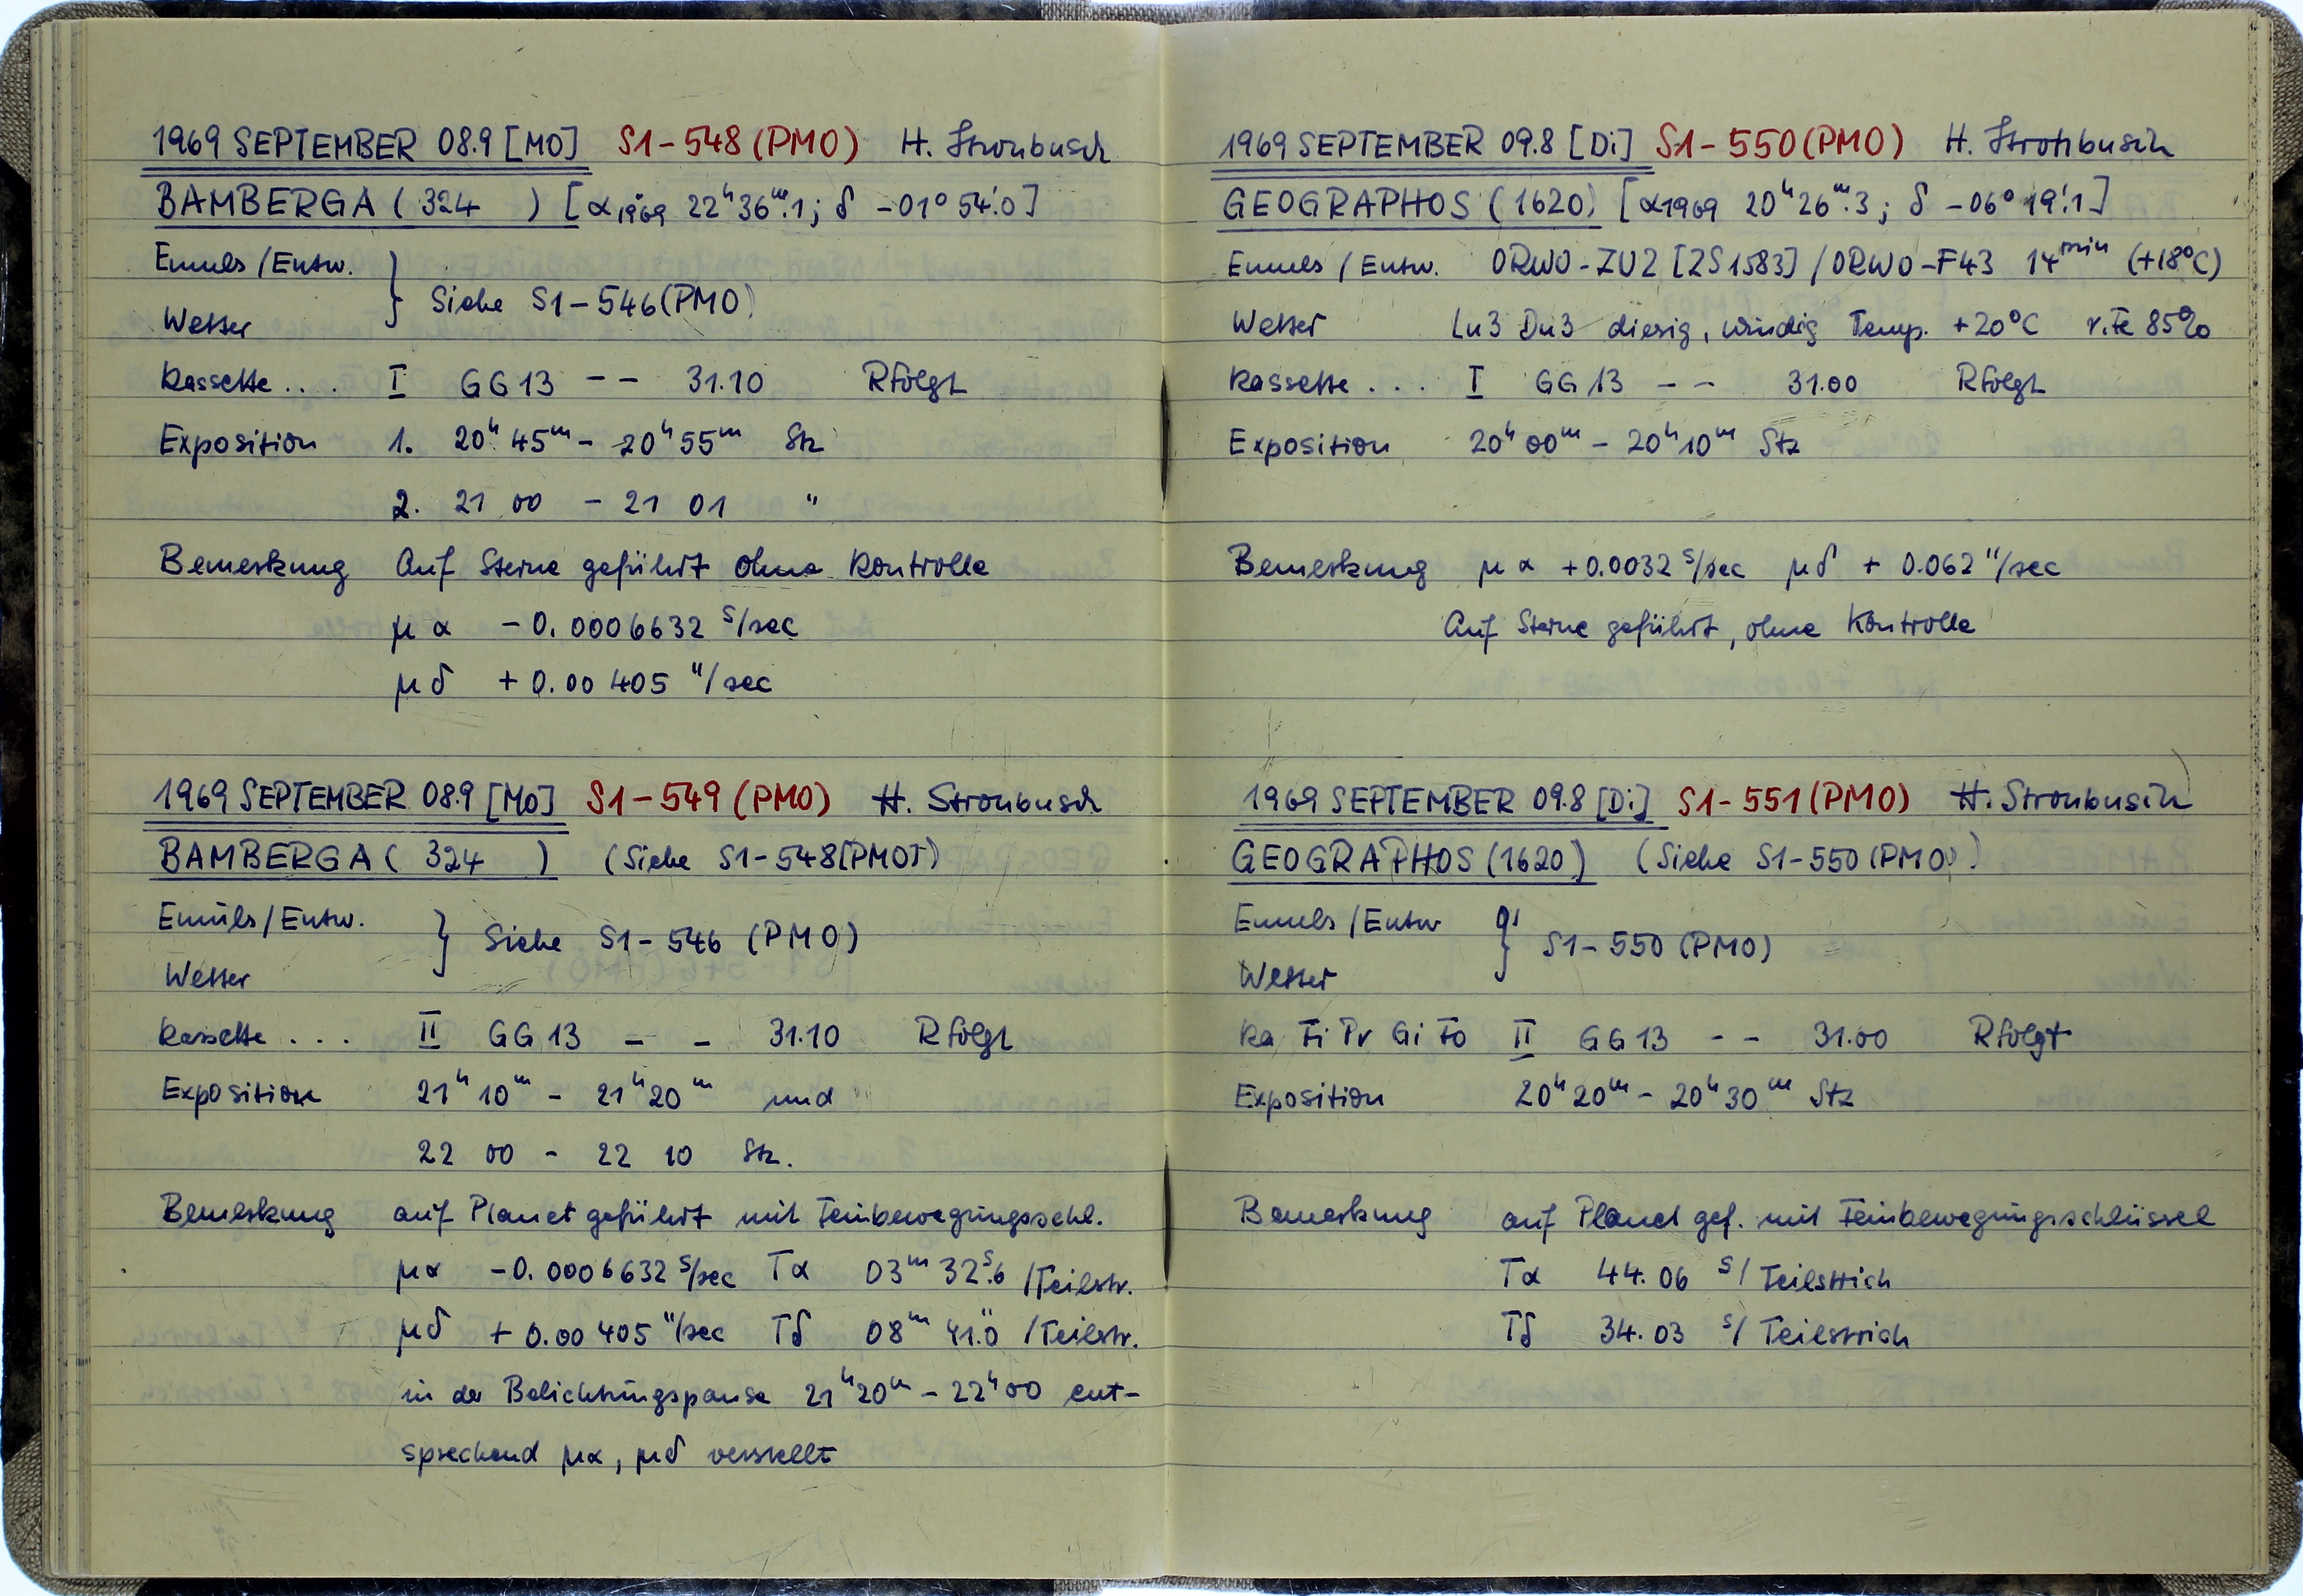 1969 SEPTEMBER 08.9 [MO] S1-548 (PMO) H. Strohbusch
BAMBERGA ( 324 ) [α1969 22ʰ36ᵐ.1; δ -01° 54'.0]
Emuls/Entw.
} Siehe S1-546(PMO)
Wetter
Kassette .... I GG13 -- 31.10 Rfolgt
Exposition 1. 20ʰ 45ᵐ - 20ʰ 55ᵐ Stz
2. 21 00 - 21 01 "
Bemerkung Auf Sterne geführt ohne Kontrolle
μα -0.0006632 ˢ/sec
μδ +0.00405 "/sec
1969 SEPTEMBER 08.9 [MO] S1-549 (PMO) H. Strohbusch
BAMBERGA ( 324 ) (Siehe S1-548[PMO])
Emuls/Entw.
} Siehe S1-546 (PMO)
Wetter
Kassette ... II GG13 - - 31.10 Rfolgt
Exposition 21ʰ 10ᵐ - 21ʰ 20ᵐ und
22 00 - 22 10 Stz.
Bemerkung auf Planet geführt mit Feinbewegungsschl.
μα -0.0006632 ˢ/sec Tα 03ᵐ 32ˢ.6 /Teilstr.
μδ +0.00405 "/sec Tδ 08ᵐ 41".0 /Teilstr.
in der Belichtungspause 21ʰ20ᵐ - 22ʰ00 ent-
sprechend μα, μδ verstellt
1969 SEPTEMBER 09.8 [Di] S1-550 (PMO) H. Strohbusch
GEOGRAPHOS (1620) [α1969 20ʰ26ᵐ.3; δ -06° 19'.1]
Emuls / Entw. ORWO-ZU2 [ZS1583] / ORWO-F43 14ᵐⁱⁿ (+18°C)
Wetter Lu3 Du3 diesig, windig Temp. +20°C r.Fe 85%
Kassette ... I GG13 - - 31.00 Rfolgt
Exposition 20ʰ 00ᵐ - 20ʰ 10ᵐ Stz
Bemerkung μα +0.0032 ˢ/sec μδ + 0.062 "/sec
Auf Sterne geführt, ohne Kontrolle
1969 SEPTEMBER 09.8 [Di] S1-551 (PMO) H. Strohbusch
GEOGRAPHOS (1620) (Siehe S1-550 (PMO))
Emuls/Entw
} S1-550 (PMO)
Wetter
Ka Fi Pr Gi Fo II GG13 - - 31.00 Rfolgt
Exposition 20ʰ20ᵐ - 20ʰ30ᵐ Stz
Bemerkung auf Planet gef. mit Feinbewegungsschlüssel
Tα 44.06 ˢ/ Teilstrich
Tδ 34.03 ˢ/ Teilstrich